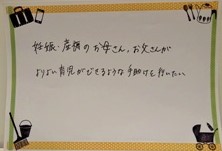 妊娠・産褥のお母さん、お父さんが
よりよい育児ができるような手助けを行いたい